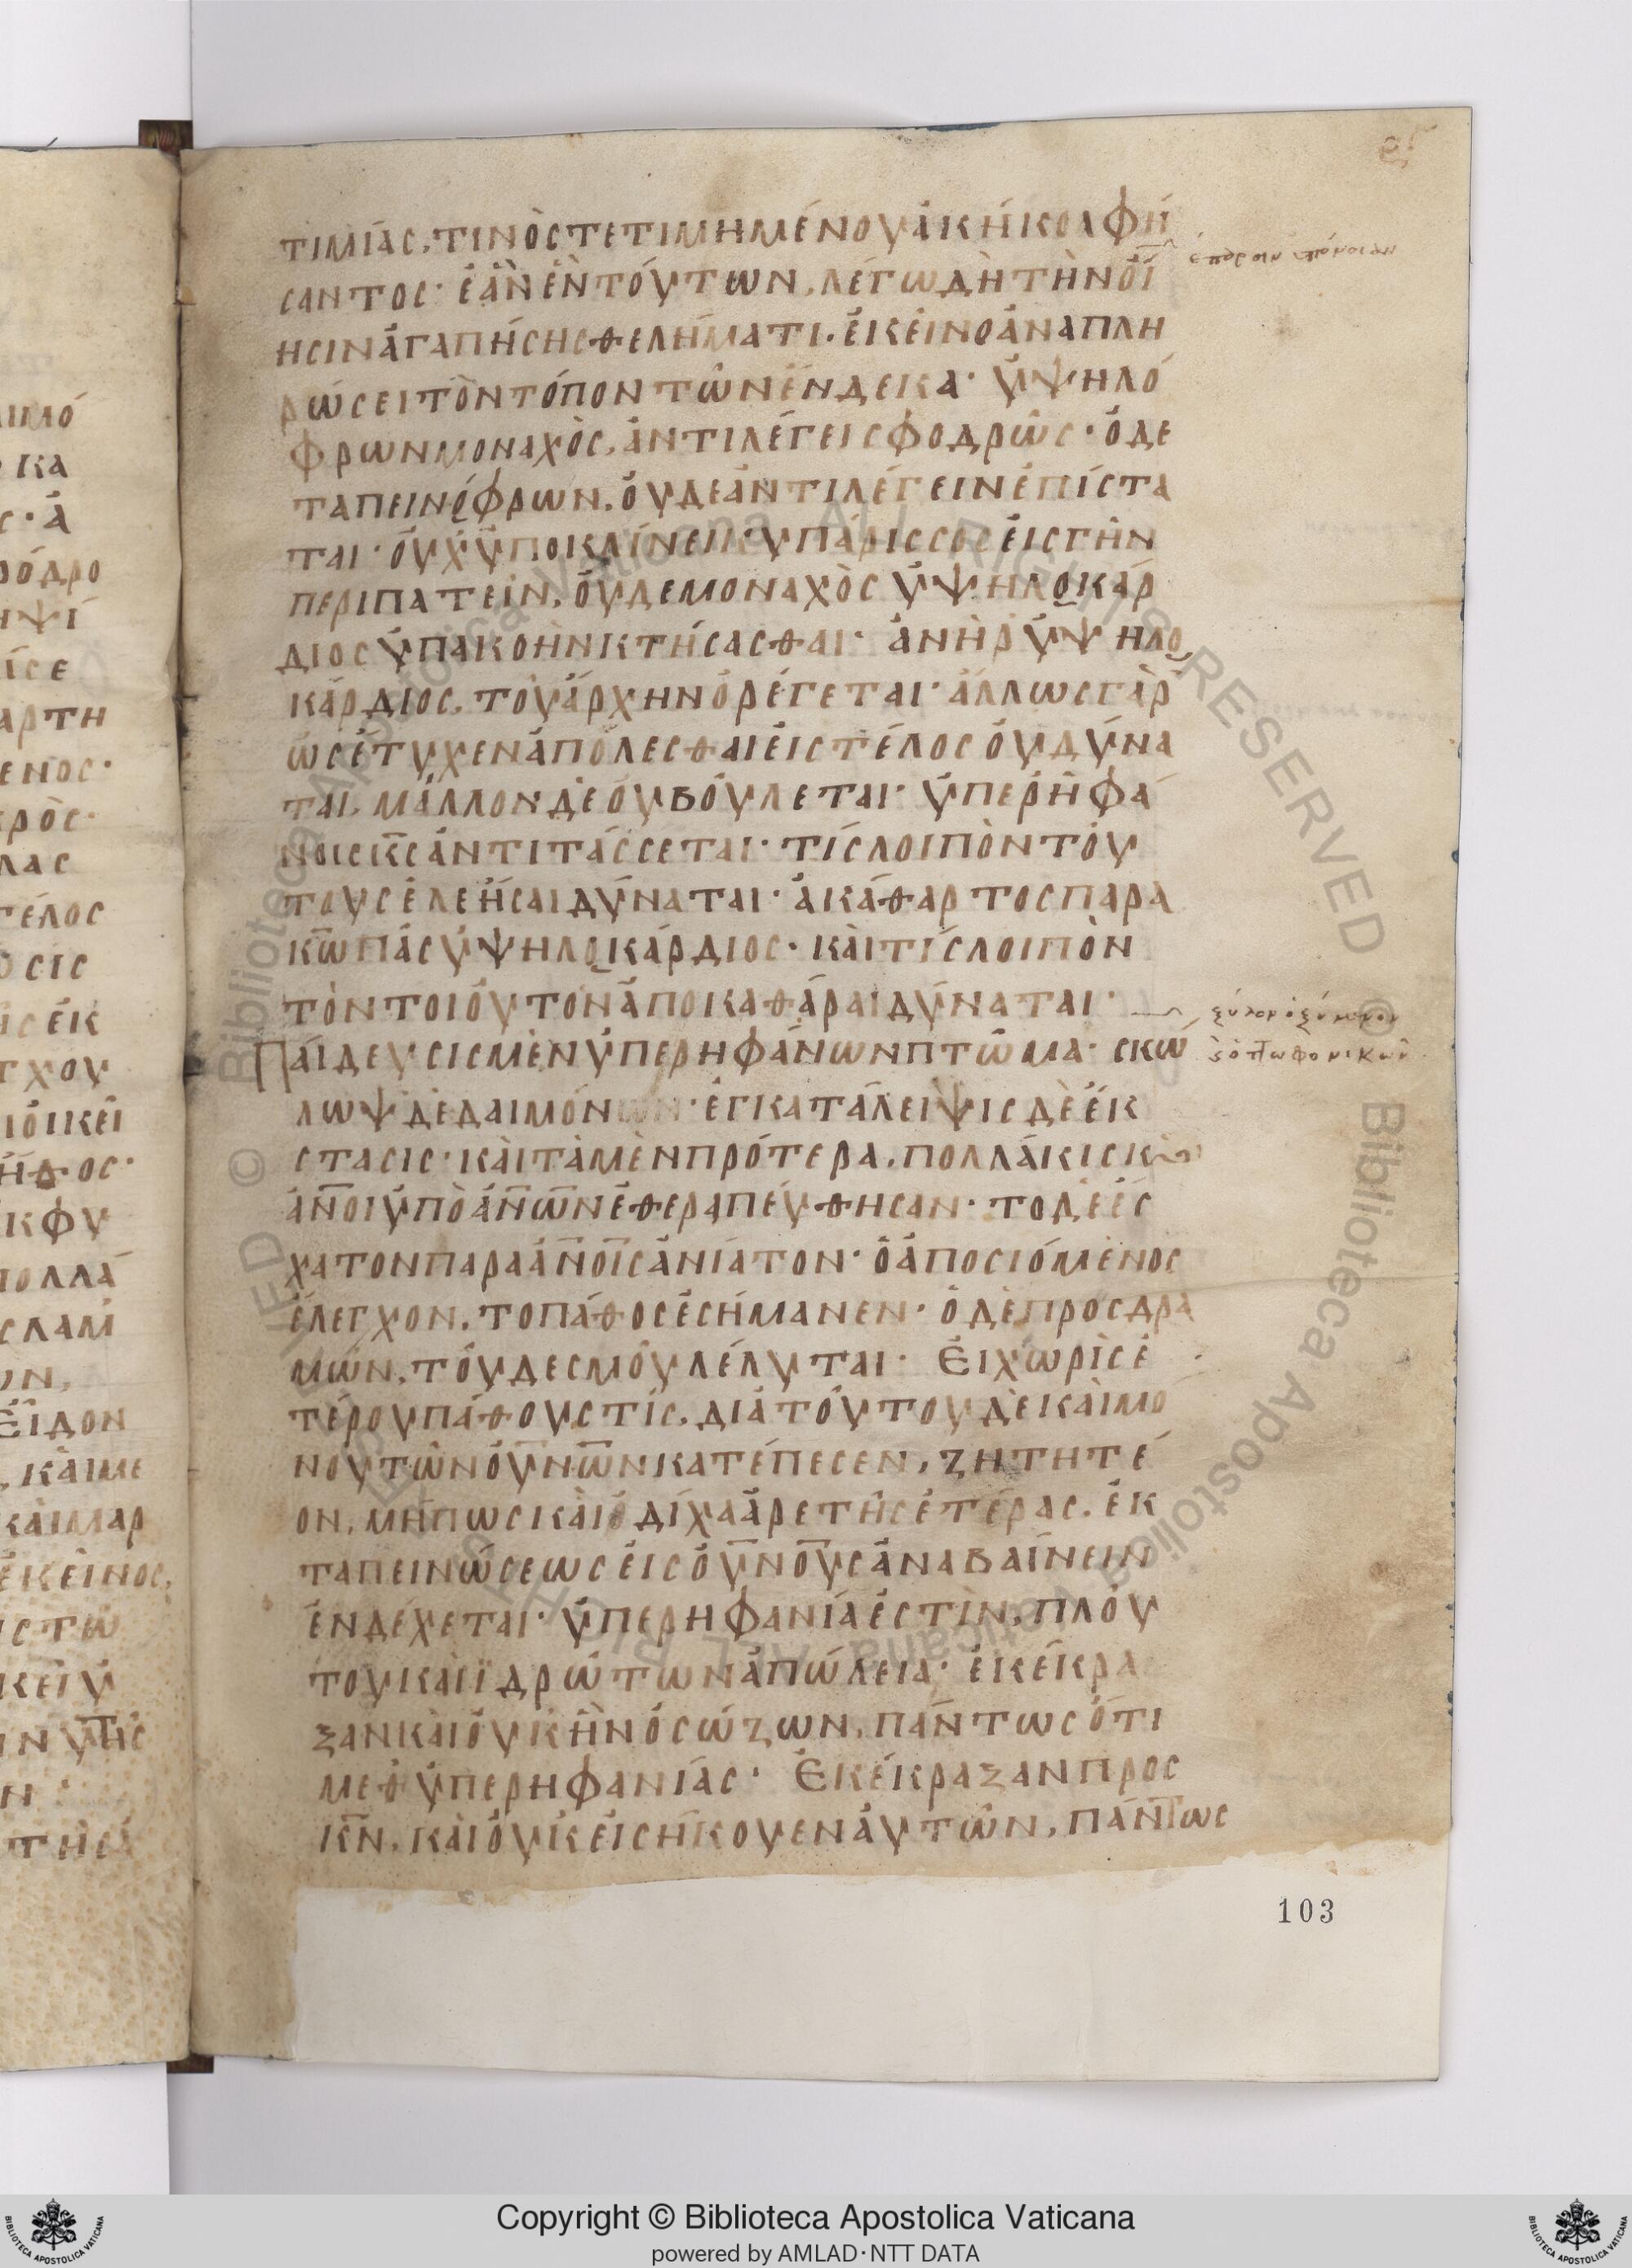 τιμίας, τινὸς τετιμημένου ἀκήκοα φή
σαντος· ἐὰν ἐν τούτων, λέγω δὴ τὴν οἴ
ησιν ἀγαπήσης θελήματι. ἐκεῖνο ἀναπλη
ρώσει τὸν τόπον τῶν ἕνδεκα· ὑψηλό
φρων μοναχὸς, ἀντιλέγει σφοδρῶς· ὁ δε
ταπεινόφρων, οὐδε ἀντιλέγειν ἐπίστα
ται· οὐχ ὑποκλίνει κυπάρισσος εἰς γῆν
περιπατεῖν, οὐδε μοναχὸς ὑψηλοκάρ
διος ὑπακοὴν κτήσασθαι· ἀνὴρ ὑψηλο
κάρδιος, τοῦ ἄρχην ὀρέγεται· ἄλλως γὰρ
ὡς ἔτυχεν ἀπόλεσθαι εἰς τέλος οὐ δύνα
ται, μᾶλλον δὲ οὐ βούλεται· ὑπερήφα
νοις κς ἀντιτάσσεται· τίς λοιπὸν τού
τους ἐλεῆσαι δύναται· ἀκάθαρτος παρα
κω πᾶς ὑψηλοκάρδιος· καὶ τίς λοιπὸν
τὸν τοιοῦτον ἀποκαθάραι δύναται·
Παίδευσις μὲν ὑπερηφάνων πτῶμα· σκώ
λωψ δὲ δαιμόνων· ἐγκατάλειψις δὲ ἔκ
στασις· καὶ τὰ μὲν πρότερα, πολλάκις κ
ἀνοι ὑπὸ ἀνων ἐθεραπεύθησαν· το δὲ ἔσ
χατον παρα ἀνοις ἀνίατον· ὁ ἀποσιόμενος
ἔλεγχον, το πάθος ἐσήμανεν· ὁ δὲ προσδρα
μών, τοῦ δεσμοῦ λέλυται· Εἰ χωρὶς ἑ
τέρου πάθους τίς, διὰ τούτου δὲ καὶ μό
νου τῶν ουνων κατέπεσεν, ζητητέ
ον, μήπως καὶ δίχα ἀρετῆς ἑτέρας. ἐκ
ταπεινώσεως εἰς ουνους ἀναβαίνειν
ἐνδέχεται· ὑπερηφανία ἐστὶν, πλού
του καὶ ἱδρώτων ἀπώλεια· ἐκέκρα
ξαν καὶ οὐκ ἦν ὁ σώζων, πάντως ὅτι
μεθ ὑπερηφανίας· Ἐκέκραξαν προς
κν, καὶ οὐκ εἰσήκουεν ἀυτῶν, πάντως
103
Copyright © Biblioteca Apostolica Vaticana
powered by AMLAD·NTT DATA